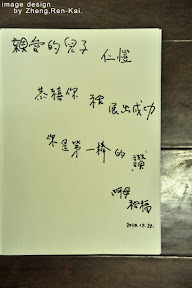 image design
by Zheng,Ren-Kai.
親愛的兒子
仁愷
恭禧你 展出成功
你是第一棒的
讚
阿母
祝福
2010.12.22.